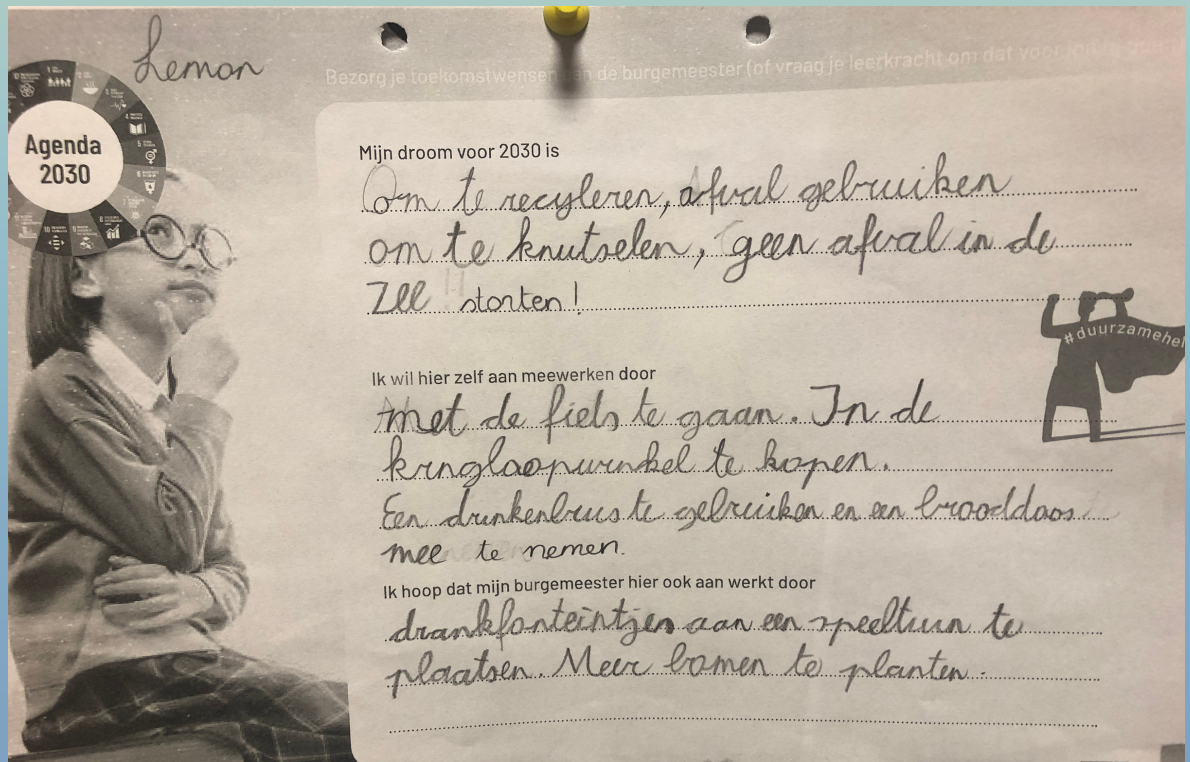 Lemon
Bezorg je toekomstwensen aan de burgemeester (of vraag je leerkracht om dat voor
Agenda
2030
Mijn droom voor 2030 is
Om te recyleren, afval gebruiken
om te knutselen, geen afval in de
zee storten!
#duurzamehel
Ik wil hier zelf aan meewerken door
met de fiets te gaan. In de
kringloopwinkel te kopen.
Een drinkenbus te gebruiken en een brooddoos
mee te nemen.
Ik hoop dat mijn burgemeester hier ook aan werkt door
drankfonteintjes aan een speeltuin te
plaatsen. Meer bomen te planten.